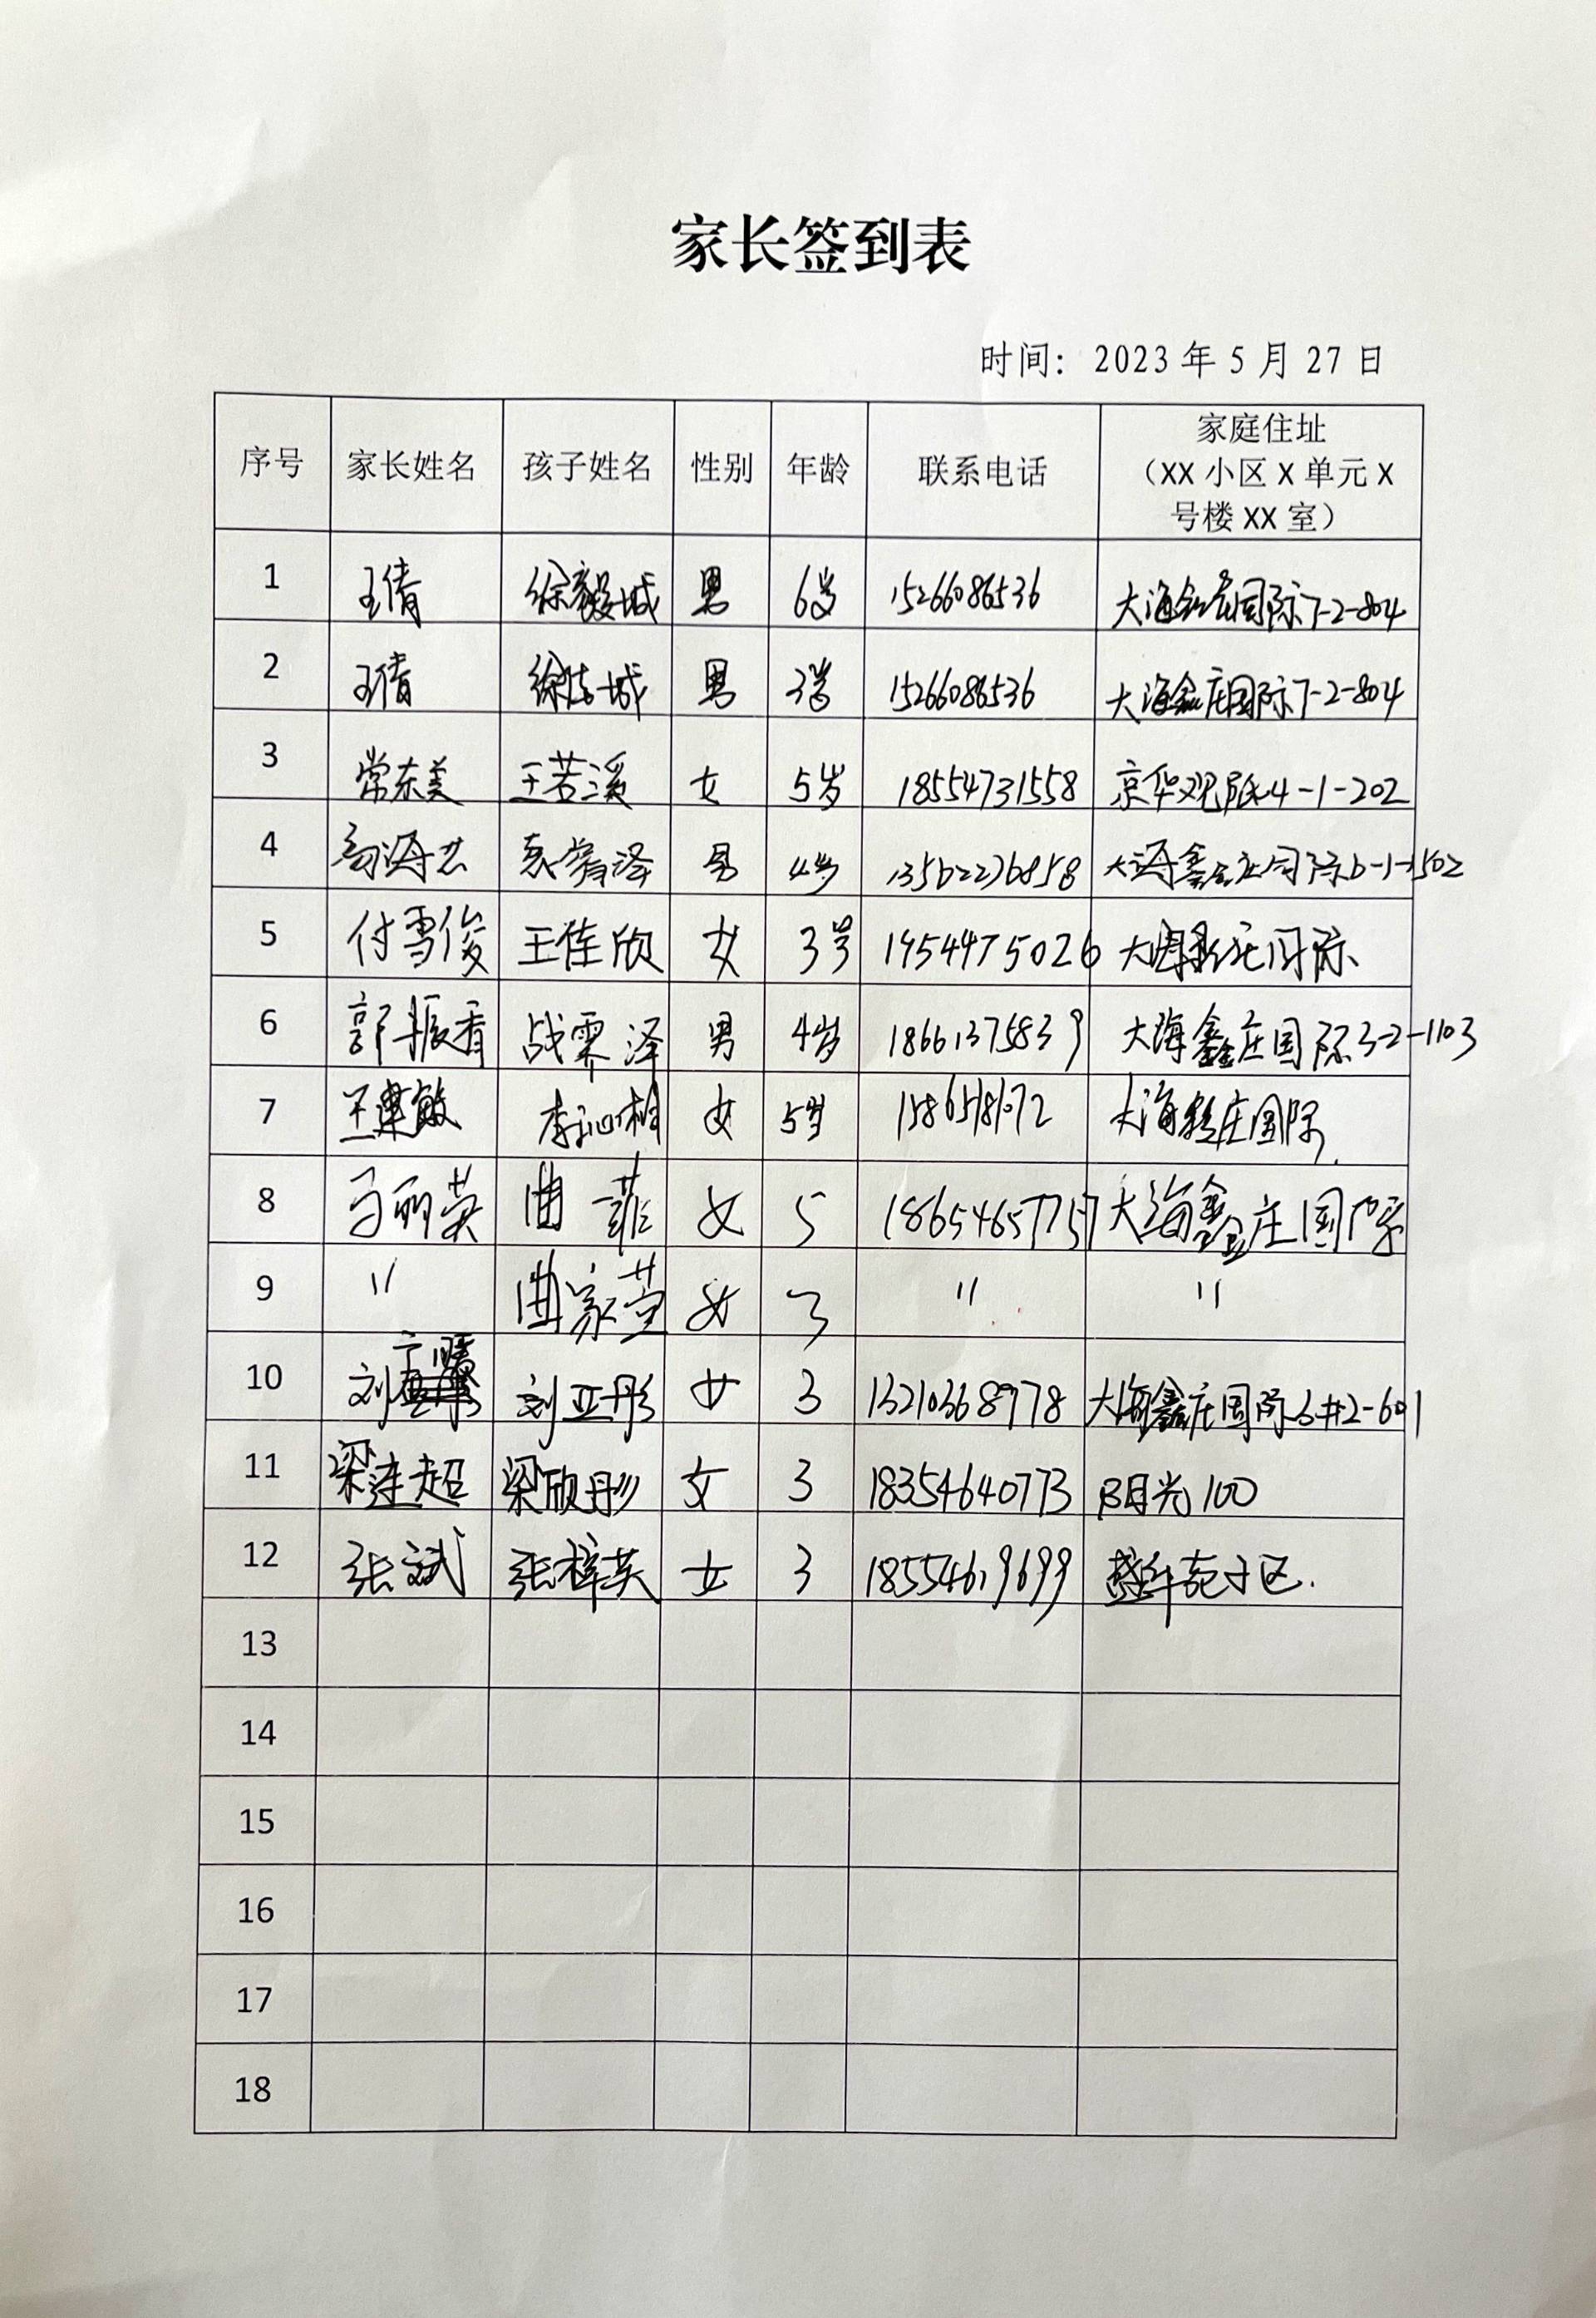 家长签到表
时间：2023年5月27日
序号 家长姓名 孩子姓名 性别 年龄 联系电话 家庭住址
（XX小区X单元X
号楼XX室）
1 王倩 徐毅城 男 6岁 15266086536 大海鑫庄国际7-2-804
2 王倩 男 3岁 15266086536 大海鑫庄国际7-2-804
3 常东美 王若溪 女 5岁 18554731558 京华观邸4-1-202
4 男 4岁 13562276858 大海鑫庄国际6-1-1502
5 付雪俊 王佳欣 女 3岁 大海鑫庄国际
6 郭振香 战霂泽 男 4岁 18661375839 大海鑫庄国际3-2-1103
7 王建敏 李沁桐 女 5岁 大海鑫庄国际
8 马丽英 曲菲 女 5 18654657757 大海鑫庄国际
9 〃 曲家萱 女 3 〃 〃
10 刘 刘亚彤 女 3 13210368978 大海鑫庄国际3#2-601
11 梁连超 梁欣彤 女 3 18354640773 阳光100
12 张斌 张梓英 女 3 18554619699 小区.
13
14
15
16
17
18